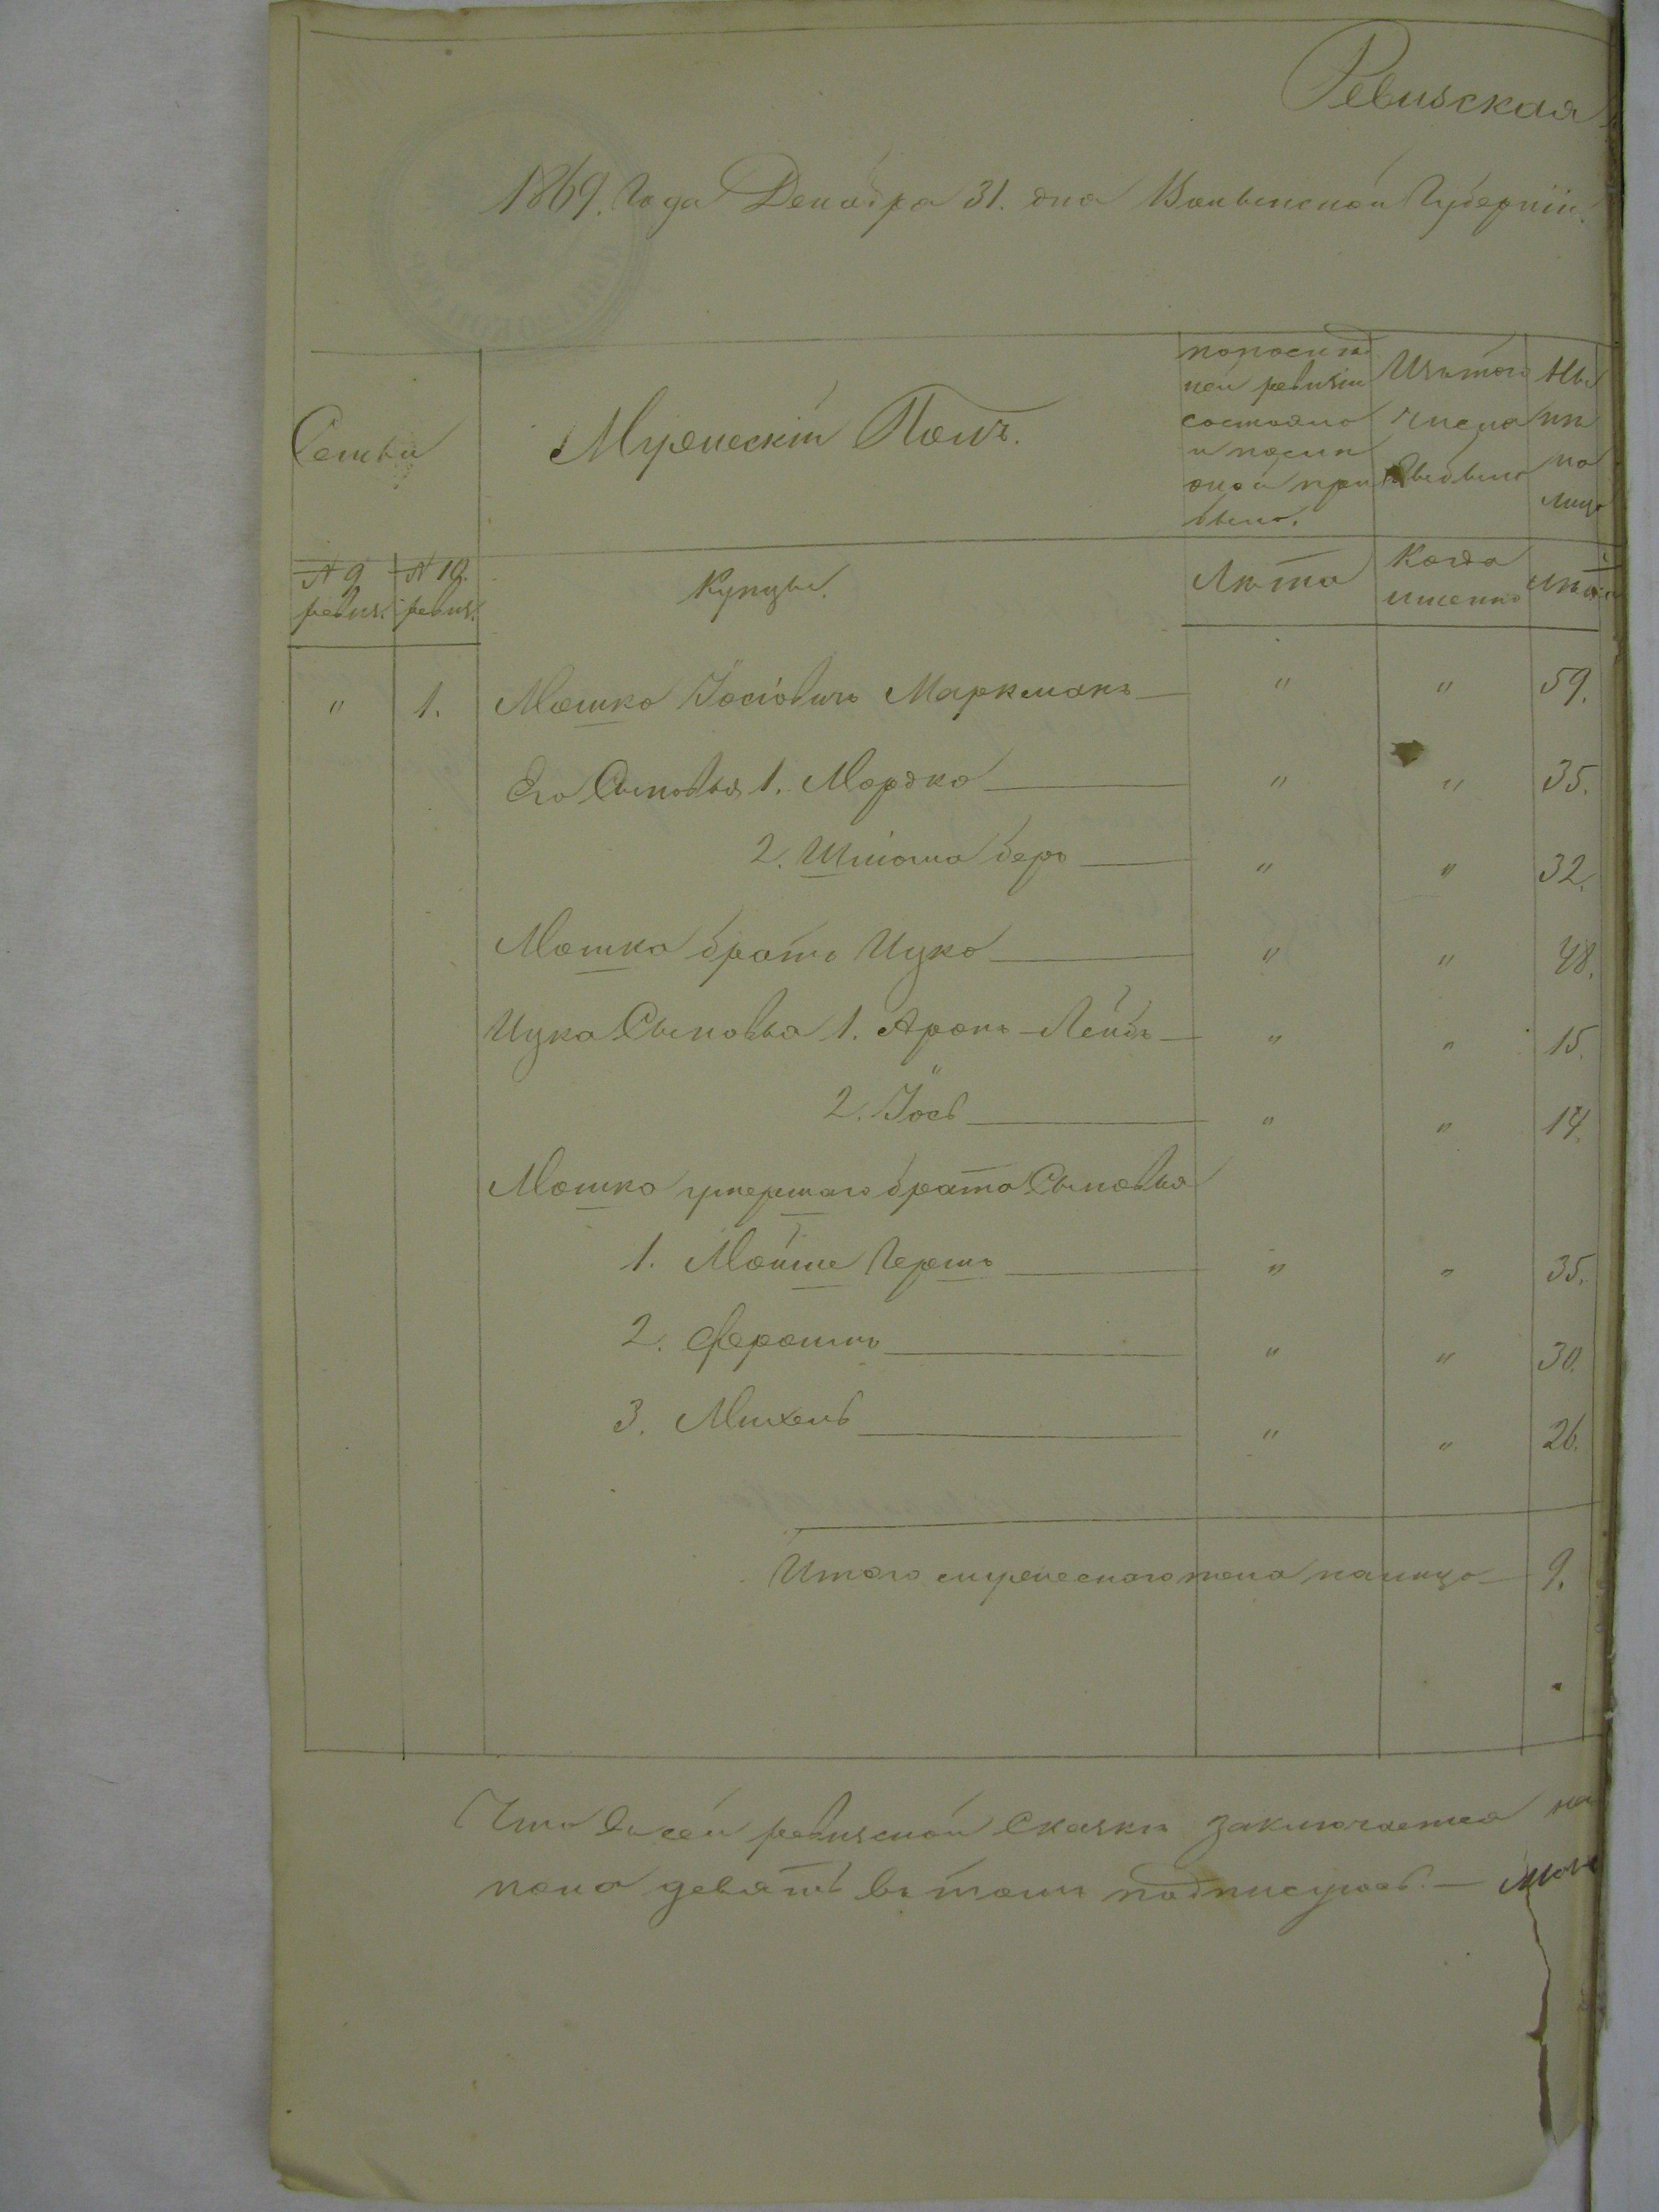 Ревизская
1869. Года Декабря 31. дня Волынской Губерніи.
Семьи
Мужескій Полъ.
по послѣд
ней ревизіи
состояло
и послѣ
оной при
было.
Изъ того
числа
Ны
нѣ
на
лицо
№ 9 ревиз.
№ 10. ревиз.
Купцы.
Лѣта
Когда
именно
Лѣта
" 1. Мошко Іосіовичъ Маркманъ " " 59.
Его Сыновья 1. Мордко " " 35.
2. Шліома беръ " " 32.
Мошка братъ Ицко " " 48.
Ицка Сыновья 1. Аронъ-Лейбъ " " 15.
2. Іось " " 14.
Мошка умершаго брата Сыновья
1. Мойше Гершъ " " 35.
2. Фроимъ " " 30.
3. Михель " " 26.
Итого мужескаго пола налицо 9.
Что въ сей ревизской Сказкѣ заключается
пола девять въ томъ подписуюсь. —